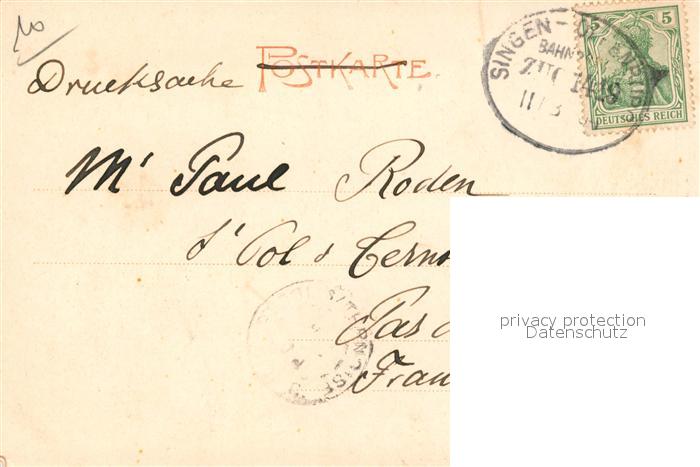 10
Drucksache POSTKARTE.
SINGEN -
BAHN
ZUG 1449
11 / 3
5 5
DEUTSCHES REICH
Mr Paul Roden
St Pol s Terno
Pas d
Fran
privacy protection
Datenschutz